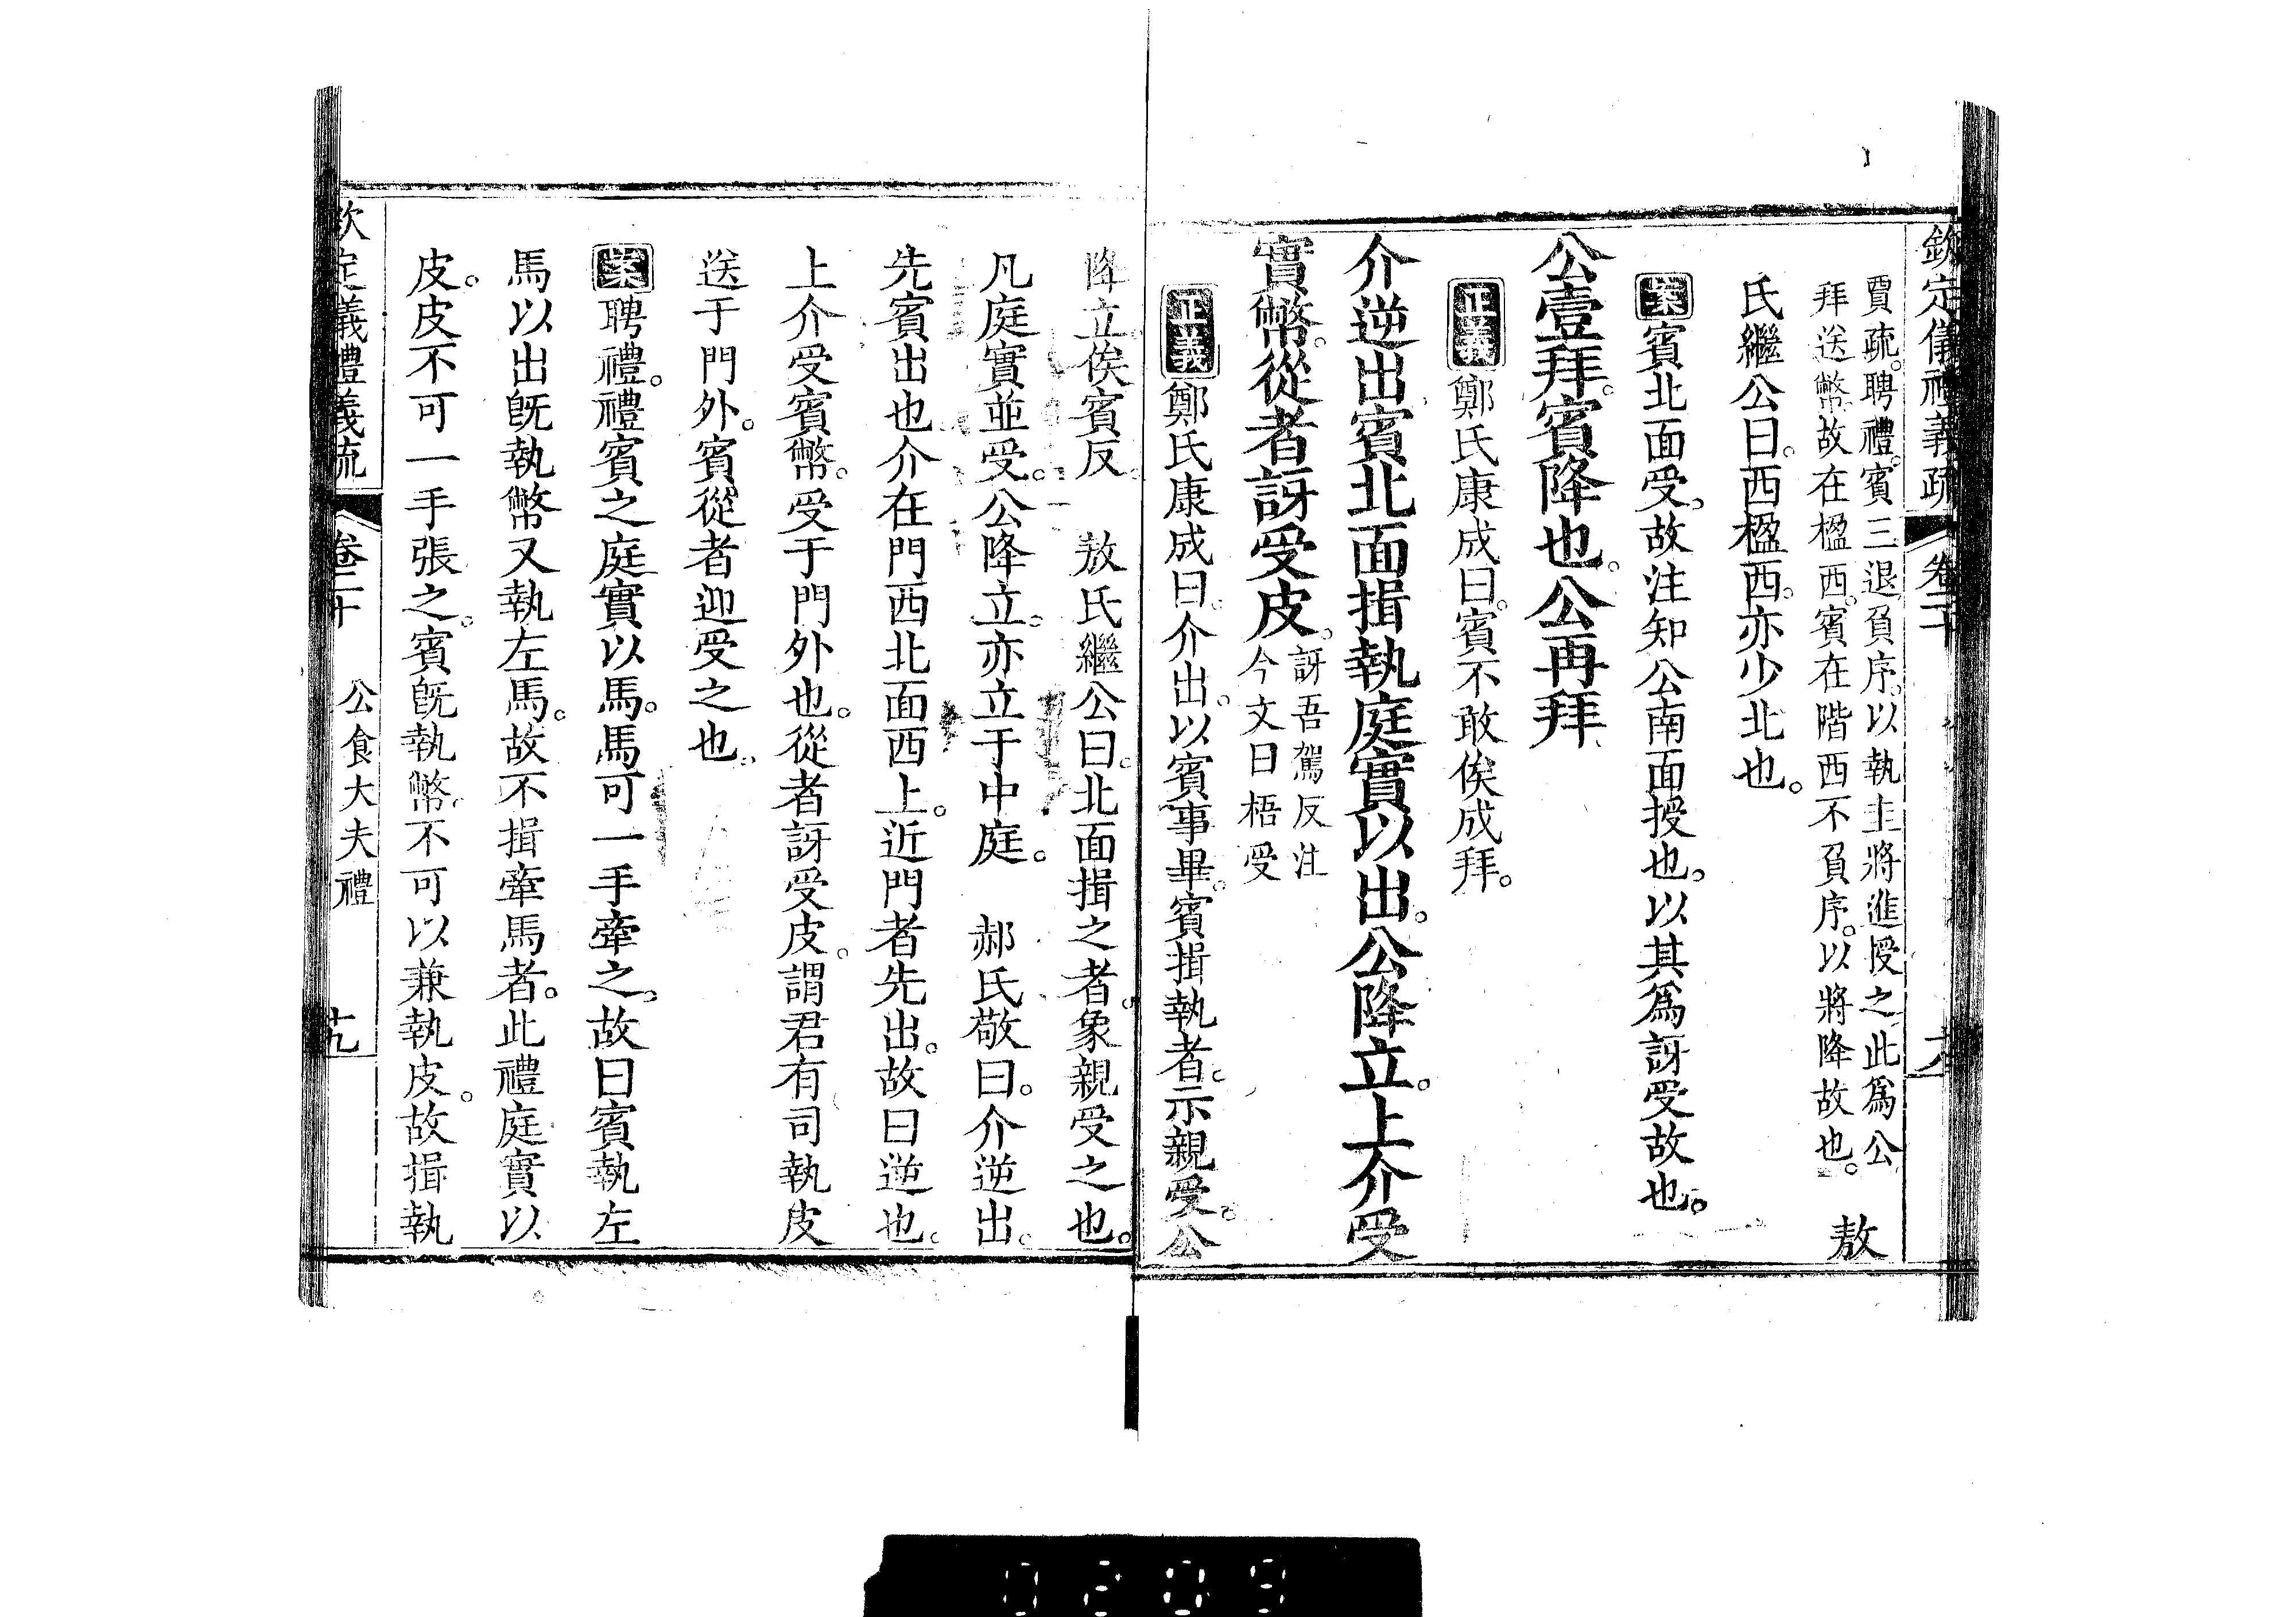 欽定儀禮義疏 卷二十
賈疏。聘禮。賓三退負序。以執圭將進授之此爲公
拜送幣故在楹西。賓在階西不負序。以將降故也。 敖
氏繼公曰。西楹西。亦少北也。
案賓北面受。故注知公南面授也。以其爲訝受故也。
公壹拜。賓降也。公再拜
正義鄭氏康成曰。賓不敢俟成拜。
介逆出賓北面揖執庭實以出。公降立。上介受
賓幣。從者訝受皮。訝吾駕反注
今文曰梧受
正義鄭氏康成曰。介出。以賓事畢。賓揖執者。示親受。公
降立俟賓反。 敖氏繼公曰。北面揖之者。象親受之也。
凡庭實並受。公降立。亦立于中庭。 郝氏敬曰。介逆出。
先賓出也介在門西北面西上。近門者先出。故曰逆也。
上介受賓幣。受于門外也。從者訝受皮。謂君有司執皮
送于門外。賓從者迎受之也。
案聘禮。禮賓之庭實以馬。馬可一手牽之。故曰賓執左
馬以出旣執幣又執左馬。故不揖牽馬者。此禮庭實以
皮。皮不可一手張之。賓旣執幣。不可以兼執皮。故揖執
欽定儀禮義疏 卷二十 公食大夫禮 十九
0209